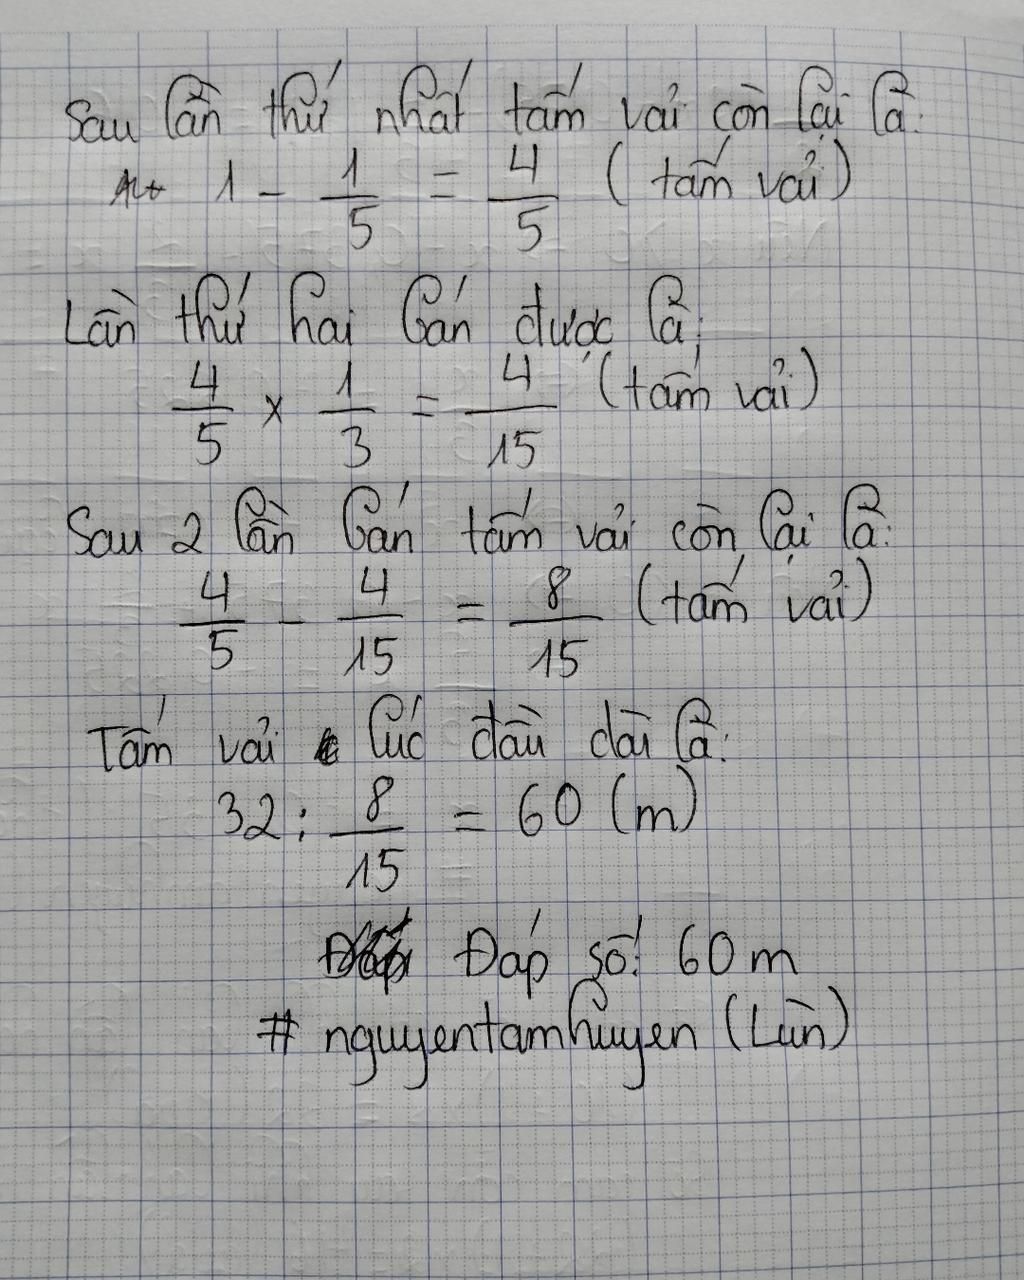 Sau lần thứ nhất tấm vải còn lại là:
1 - 1/5 = 4/5 (tấm vải)
Lần thứ hai bán được là:
4/5 x 1/3 = 4/15 (tấm vải)
Sau 2 lần bán tấm vải còn lại là:
4/5 - 4/15 = 8/15 (tấm vải)
Tấm vải lúc đầu dài là:
32 : 8/15 = 60 (m)
Đáp số: 60 m
# nguyentamhuyen (Lùn)